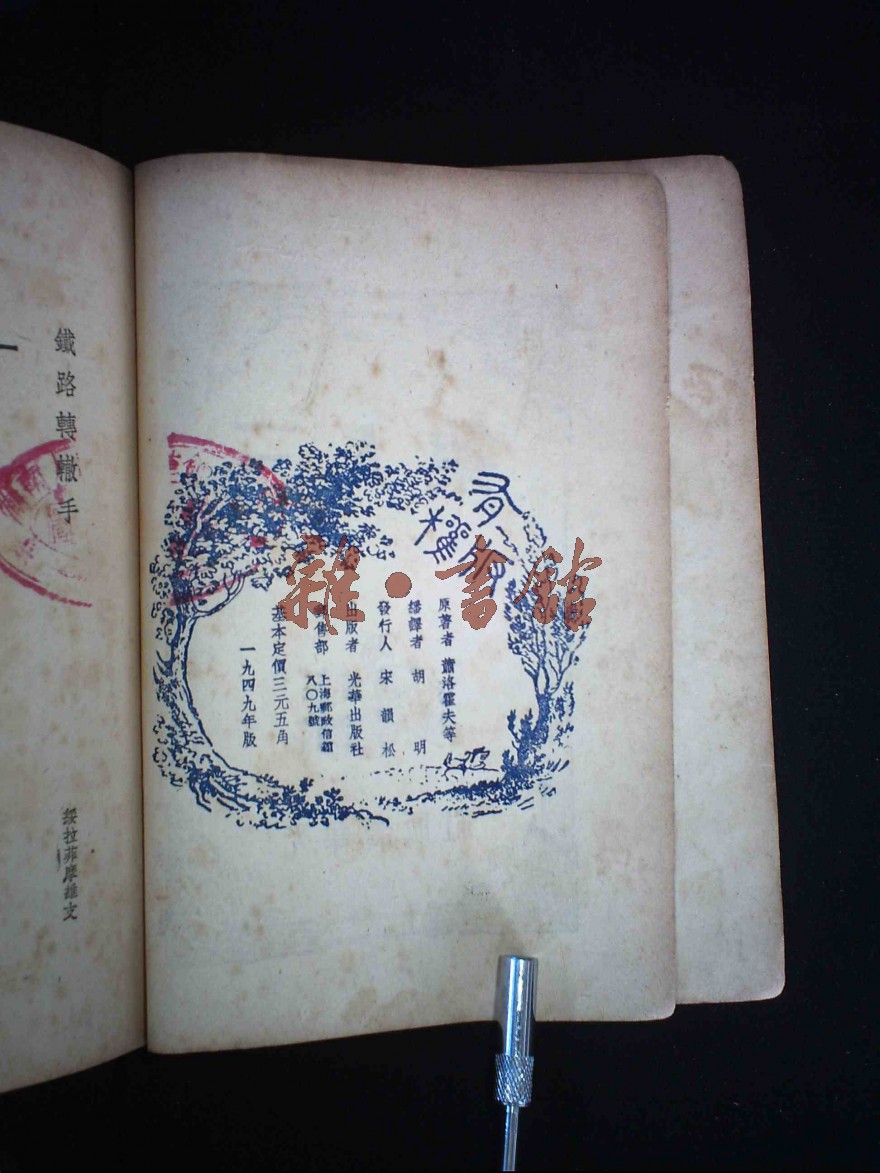 有版權
原著者 蕭洛霍夫等
繙譯者 胡明
發行人 宋韻松
出版者 光華出版社
售部 上海郵政信箱
八〇九號
基本定價三元五角
一九四九年版
鐵路轉轍手
綏拉菲摩維支
一
雜·書館